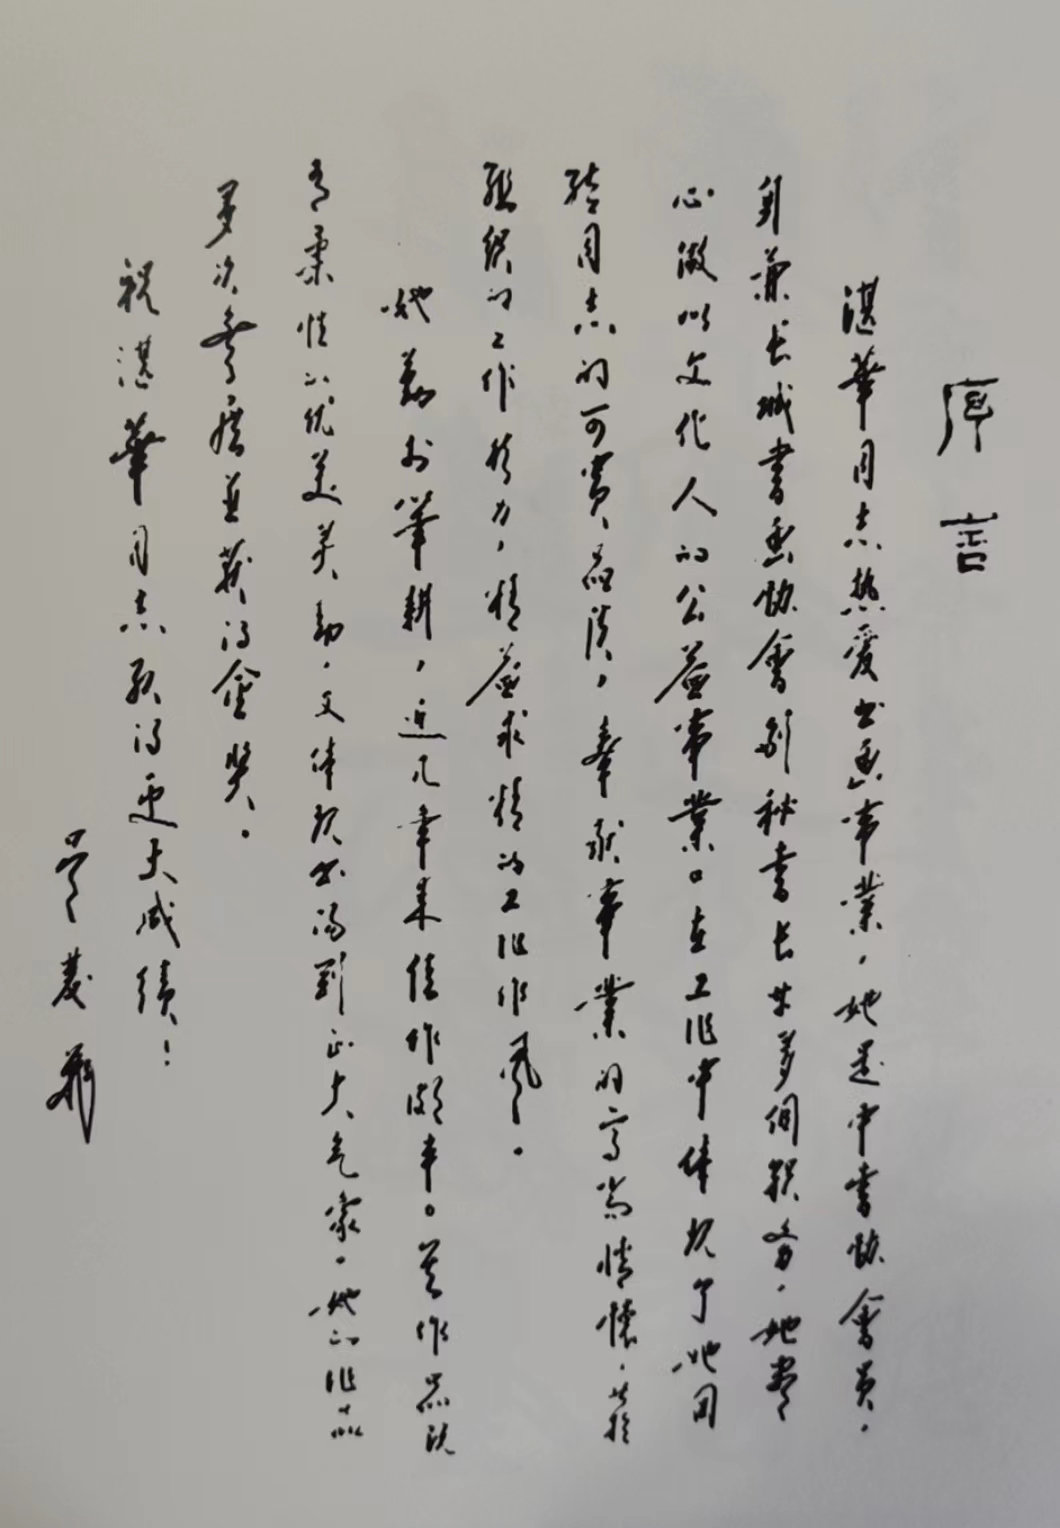 序言
湛華同志热爱书画事業，她是中書协會员，
身兼长城書画协會副秘書长等多個职务，她尽
心做好文化人的公益事業。在工作中体现了她团
结同志的可贵品质，奉献事業的高尚情懷，
组织的工作能力，精益求精的工作作風。
她勤於筆耕，近几年来佳作颇丰。其作品既
有柔性的优美英韵，文体现出阳刚正大气象。她的作品
多次參展並获得金奖。
祝湛華同志取得更大成績！